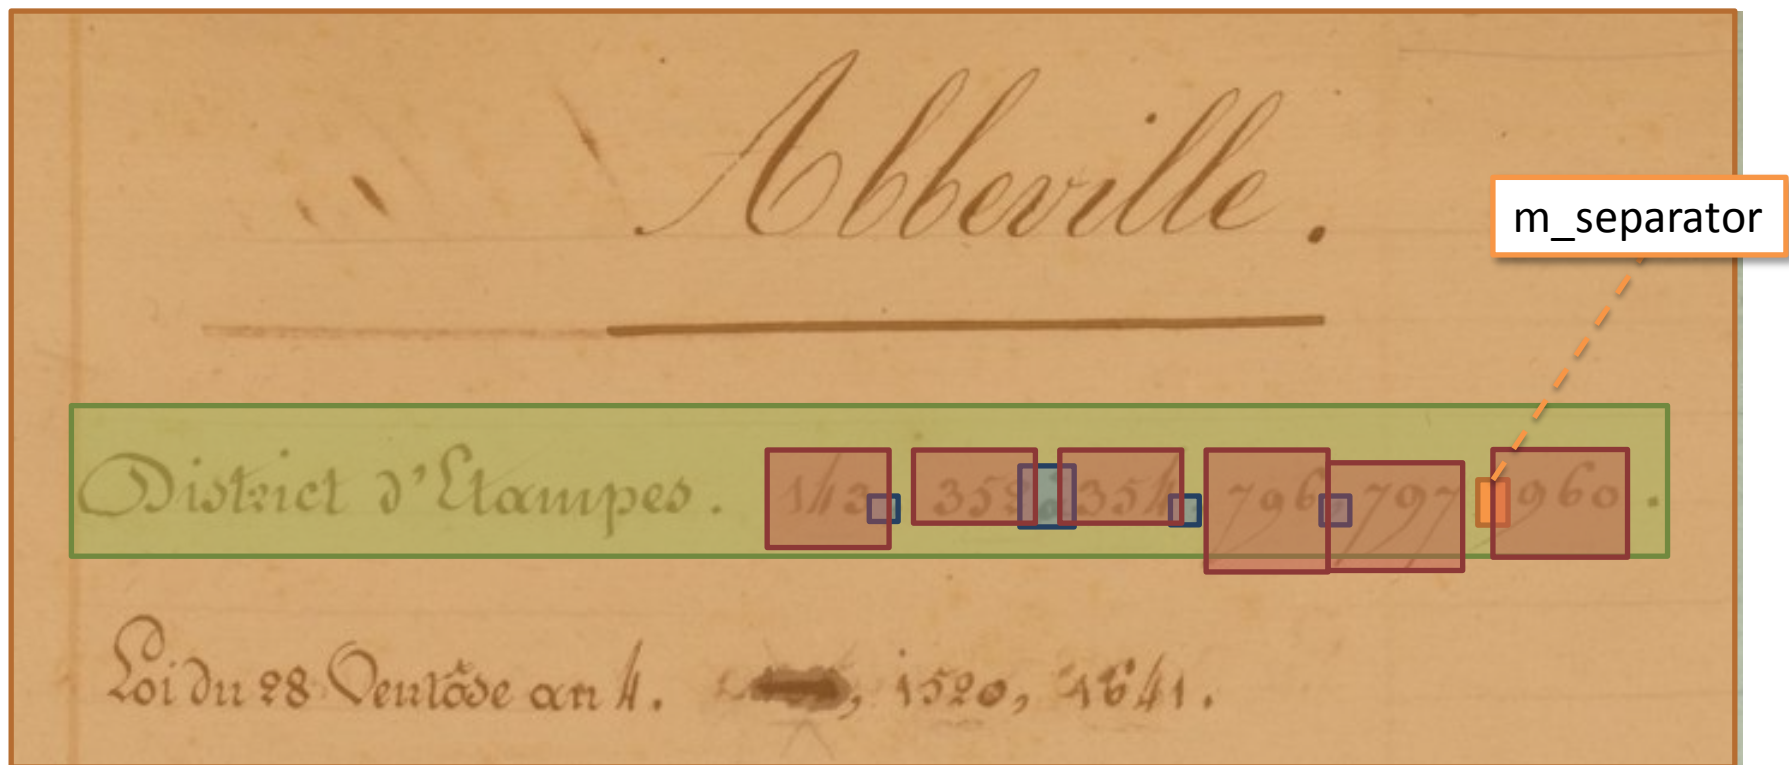 Abbeville.
m_separator
District d'Etampes. 143, à 354, 796, 797, 960.
Loi du 28 Ventôse an 4. , 1520, 1641.